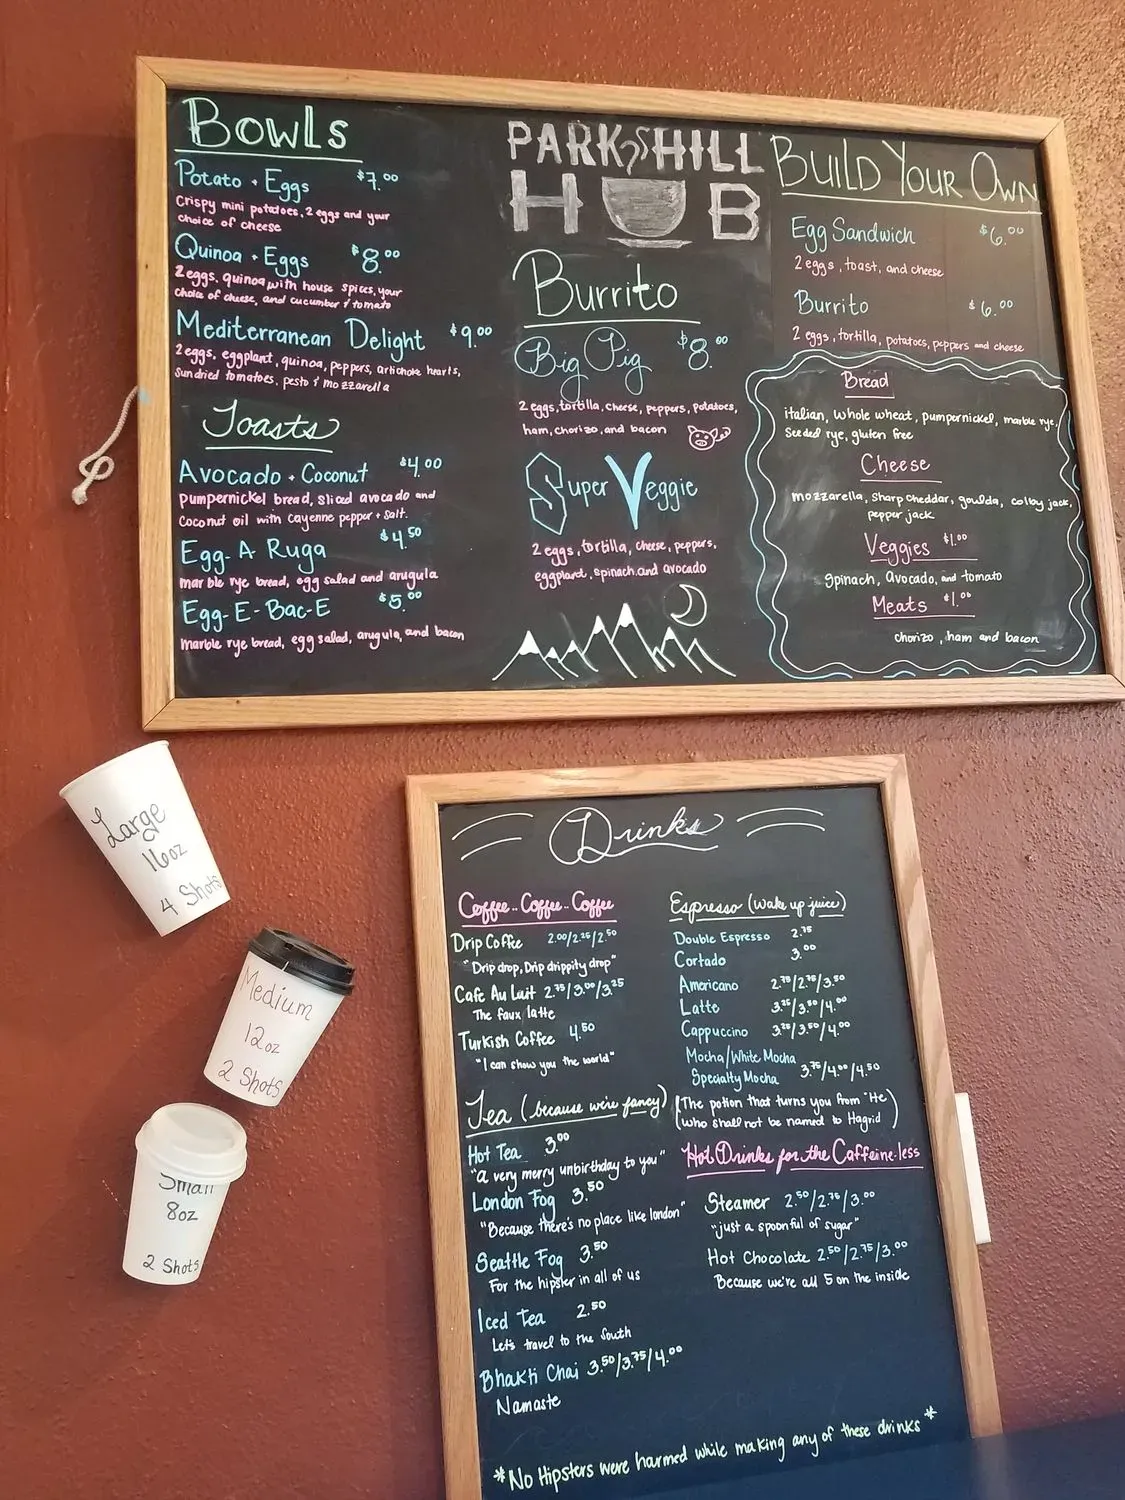 Bowls
Potato + Eggs $7.00
Crispy mini potatoes, 2 eggs and your
choice of cheese
Quinoa + Eggs $8.00
2 eggs, quinoa with house spices, your
choice of cheese, and cucumber & tomato
Mediterranean Delight $9.00
2 eggs, eggplant, quinoa, peppers, artichoke hearts,
sundried tomatoes, pesto & mozzarella
Toasts
Avocado + Coconut $4.00
pumpernickel bread, sliced avocado and
coconut oil with cayenne pepper + salt.
Egg-A Ruga $4.50
marble rye bread, egg salad and arugula
Egg-E-Bac-E $5.00
marble rye bread, egg salad, arugula, and bacon
PARK HILL
HUB
Burrito
Big Pig $8.00
2 eggs, tortilla, cheese, peppers, potatoes,
ham, chorizo, and bacon
Super Veggie
2 eggs, tortilla, cheese, peppers,
eggplant, spinach and avocado
Build Your Own
Egg Sandwich $6.00
2 eggs, toast, and cheese
Burrito $6.00
2 eggs, tortilla, potatoes, peppers and cheese
Bread
italian, whole wheat, pumpernickel, marble rye,
seeded rye, gluten free
Cheese
mozzarella, sharp cheddar, goulda, colby jack,
pepper jack
Veggies $1.00
spinach, avocado, and tomato
Meats $1.00
chorizo, ham and bacon
Large
16oz
4 Shots
Medium
12oz
2 Shots
Small
8oz
2 Shots
Drinks
Coffee..Coffee..Coffee
Drip Coffee 2.00/2.25/2.50
"Drip drop, Drip drippity drop"
Cafe Au Lait 2.75/3.00/3.25
The faux latte
Turkish Coffee 4.50
"I can show you the world"
Tea (because we're fancy)
Hot Tea 3.00
"A very merry unbirthday to you"
London Fog 3.50
"Because there's no place like london"
Seattle Fog 3.50
For the hipster in all of us
Iced Tea 2.50
Let's travel to the South
Bhakti Chai 3.50/3.75/4.00
Namaste
Espresso (wake up juice)
Double Espresso 2.75
Cortado 3.00
Americano 2.75/2.75/3.50
Latte 3.25/3.50/4.00
Cappuccino 3.25/3.50/4.00
Mocha/White Mocha
Specialty Mocha 3.75/4.00/4.50
(The potion that turns you from "He
who shall not be named to Hagrid)
Hot Drinks for the Caffeine-less
Steamer 2.50/2.75/3.00
"just a spoonful of sugar"
Hot Chocolate 2.50/2.75/3.00
Because we're all 5 on the inside
*No Hipsters were harmed while making any of these drinks*